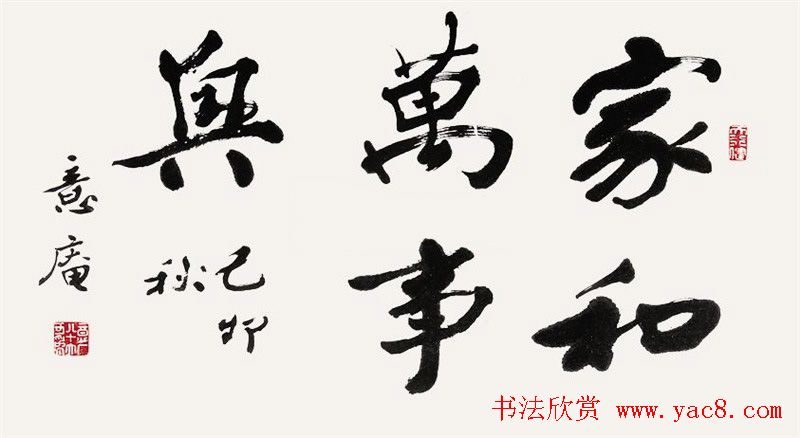 家和
萬事
興
己卯
秋
意庵
书法欣赏 www.yac8.com